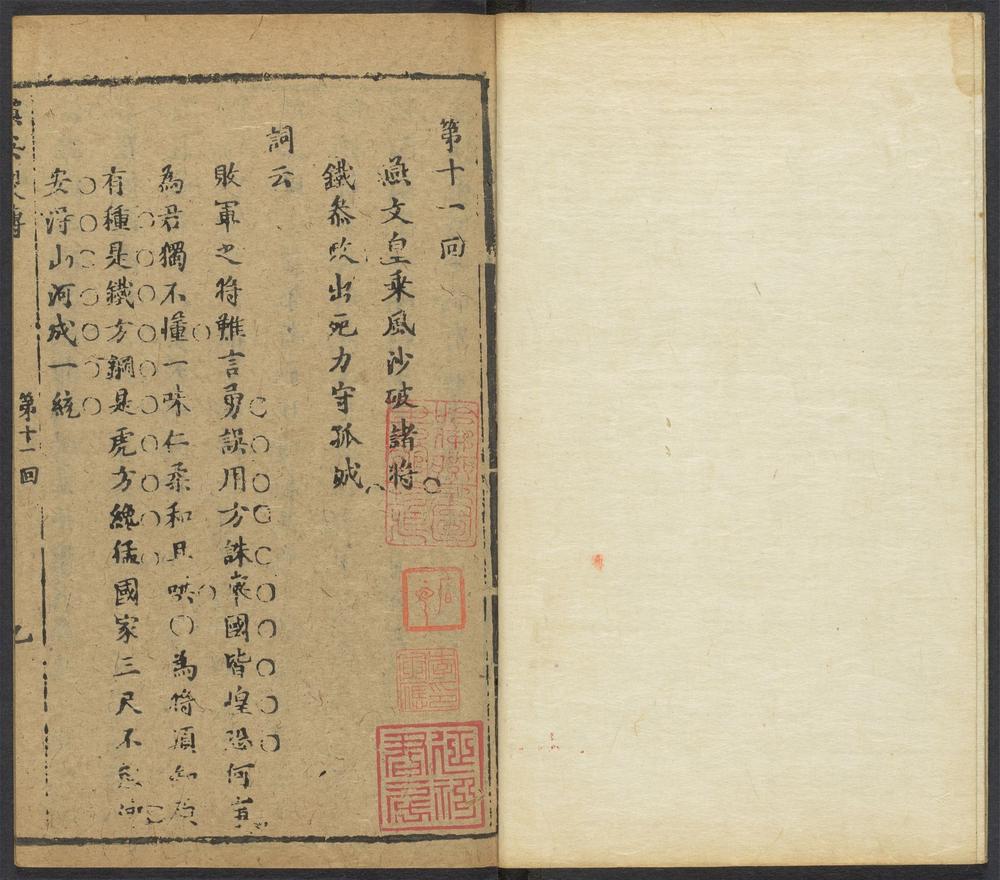 第十一回
燕文皇乘風沙破諸將
鐵叅政出死力守孤城
詞云
敗軍之將難言勇誤用方誅國皆惶恐何事
為君獨不懂一味仁柔和且哄○為將須知原
有種是鐵方鋼是虎方纔猛國家三尺不
安得山河成一統
第十一回